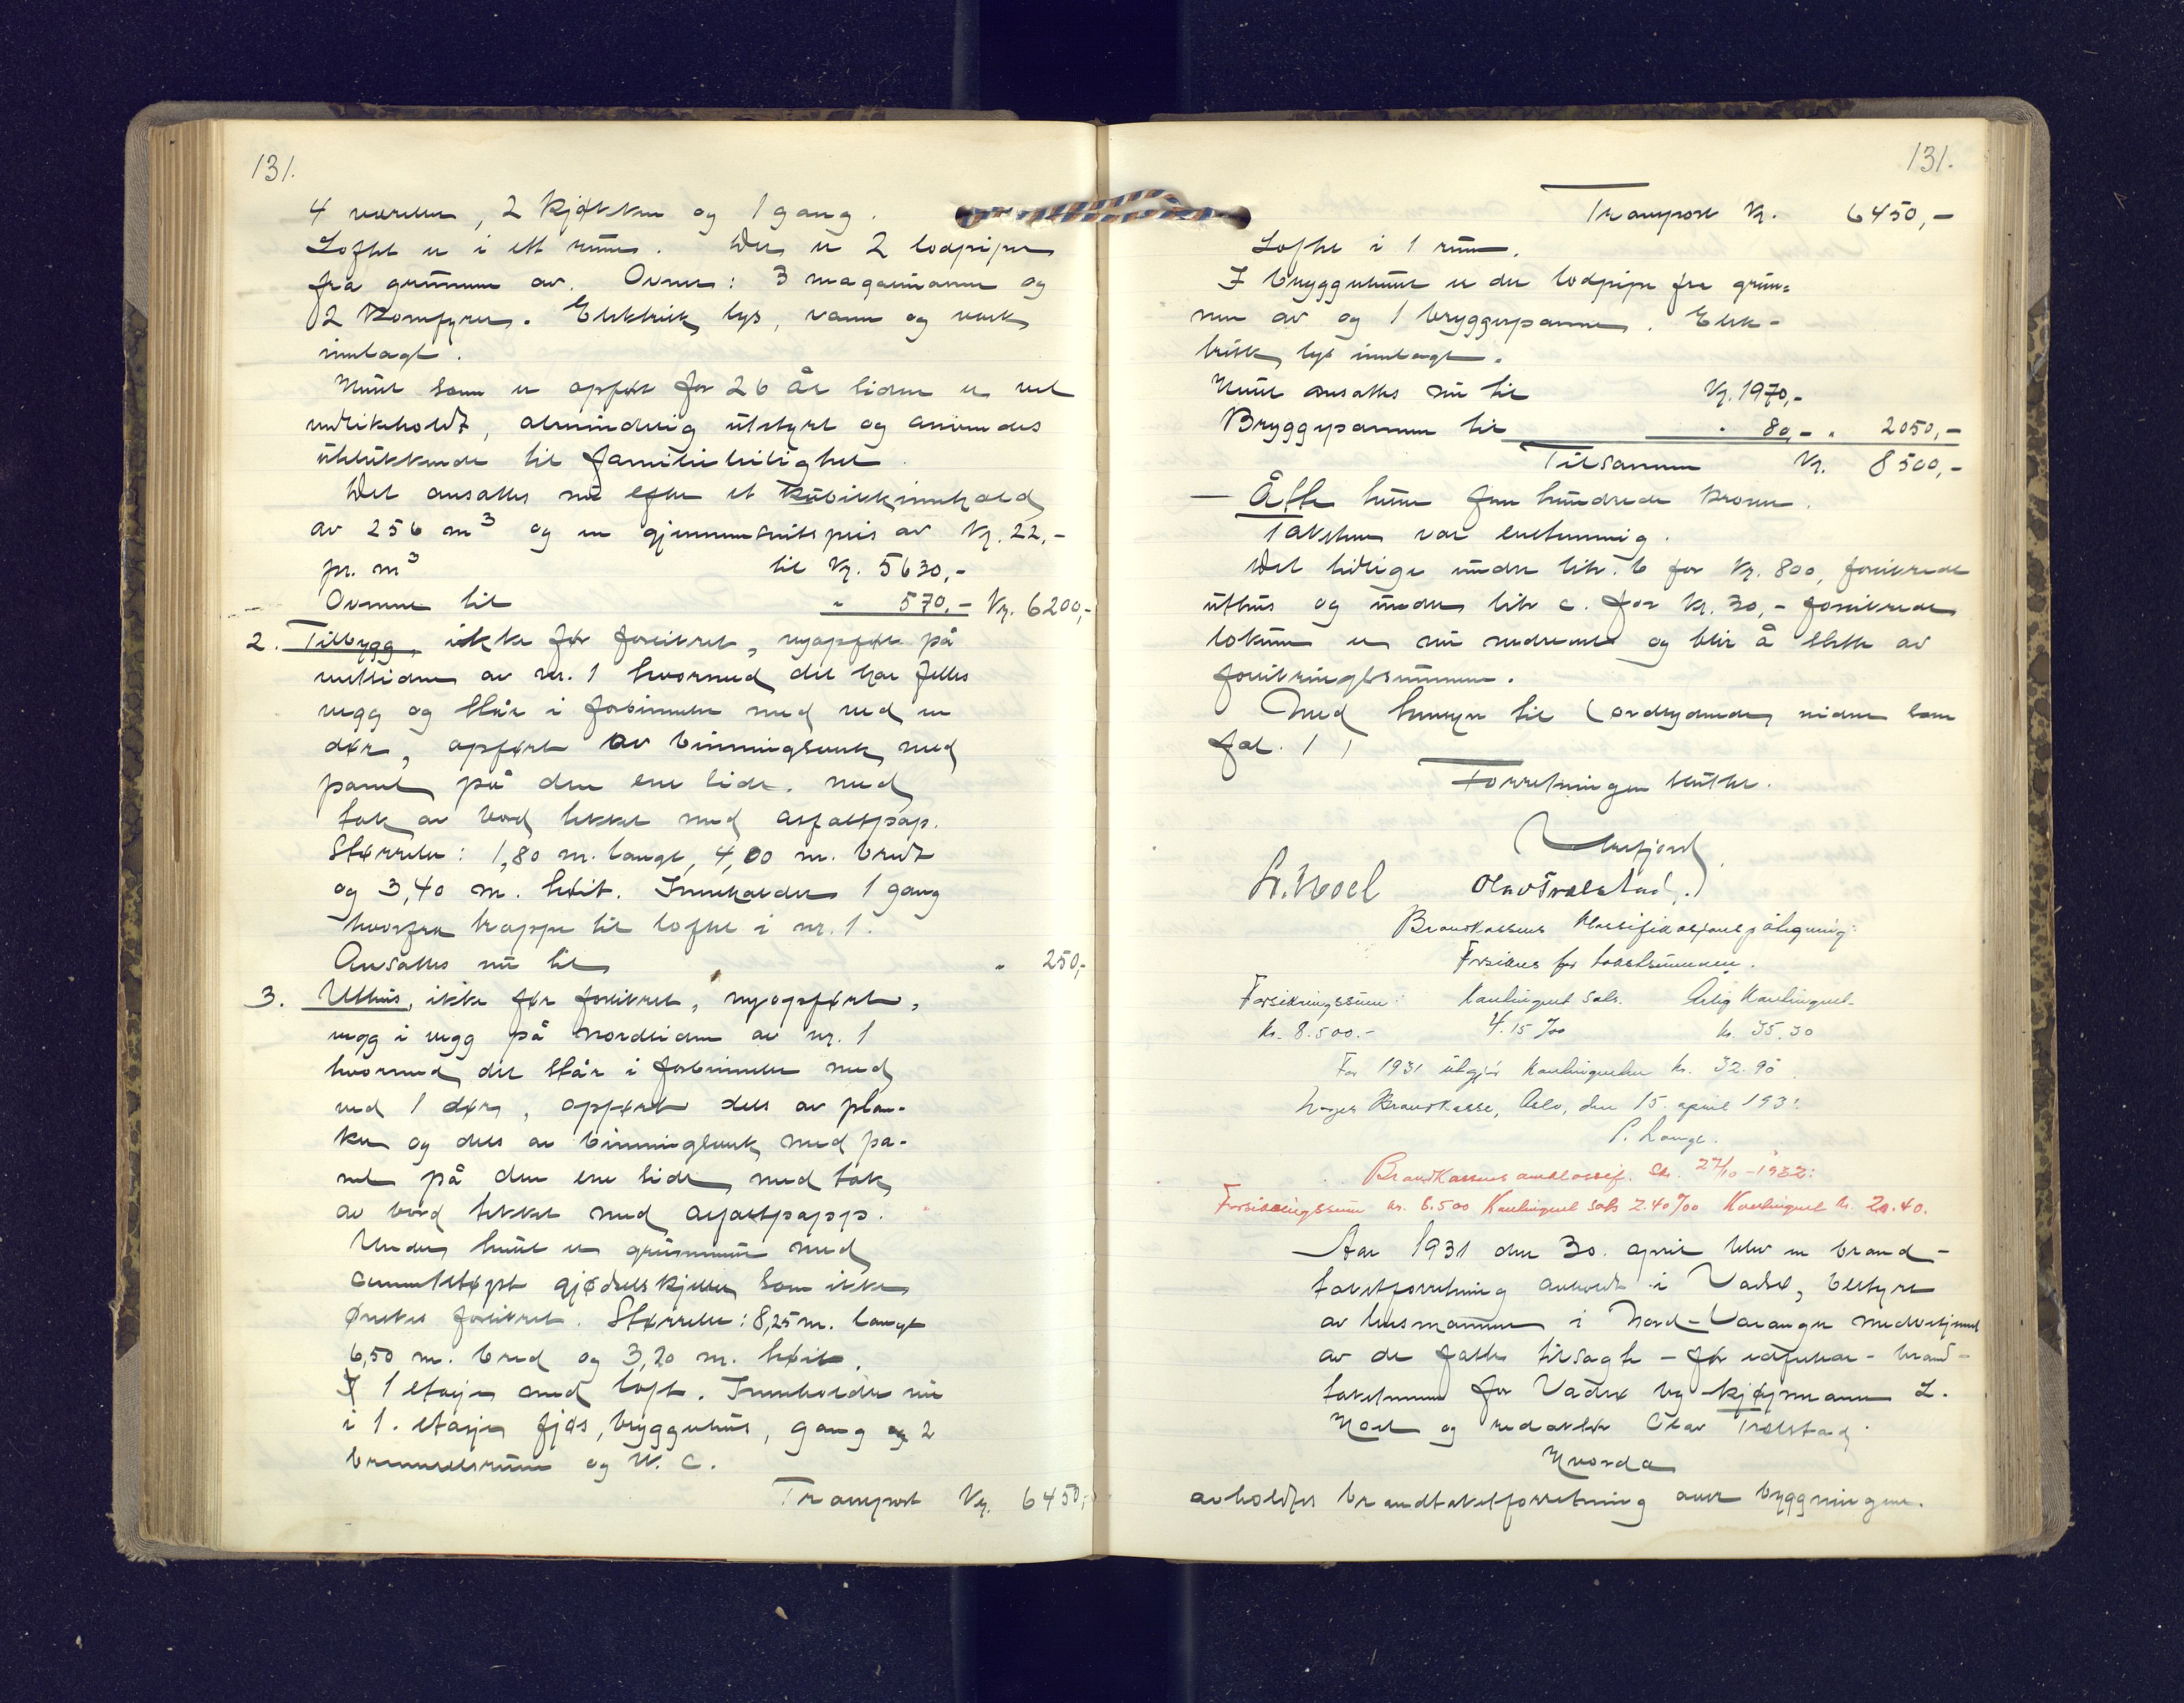 131.
4 værelser, 2 kjøkken og 1 gang.
Loftet er i ett rum. Der er 2 lodpiper
fra grunnen av. Ovner: 3 magasinovner og
2 komfyrer. Elektrisk lys, vann og vask
innlagt.
Huset som er opført for 26 år siden er vel
vedlikeholdt, almindelig utstyrt og anvendes
utelukkende til familieleilighet.
Det ansattes nu efter et kubikkinnhold
av 256 m3 og en gjennemsnitspris av Kr. 22,-
pr. m3 til Kr. 5630,-
Ovnene til " 570,- Kr. 6200,-
2. Tilbygg, ikke før forsikret, nyopført på
vestsiden av nr. 1 hvormed det har felles
vegg og står i forbinnelse med ved en
dør, opført av binningsverk med
panel på den ene side. med
tak av bord tekket med asfaltpap.
Størrelse: 1,80 m. langt, 4,00 m. bredt
og 3,40 m. høit. Inneholder 1 gang
hvorfra trappe til loftet i nr. 1.
Ansattes nu til " 250,-
3. Uthus, ikke før forsikret, nyopført,
vegg i vegg på nordsiden av nr. 1
hvormed det står i forbinnelse med
ved 1 dør, opført dels av plan-
ker og dels av binningsverk med pa-
nel på den ene side, med tak
av bord tekket med asfaltpapp.
Under huset er grunnmur med
cementstøpt gjødselskjeller som ikke
ønskes forsikret. Størrelse: 8,25 m. langt
6,50 m. bred og 3,20 m. høit.
I 1 etasje med loft. Inneholder nu
i 1. etasje fjøs, bryggehus, gang og 2
brenselsrum og W. C.
Transport Kr. 6450,-
131.
Transport Kr. 6450,-
Loftet i 1 rum.
I bryggehuset er der lodpipe fra grun-
nen av og 1 bryggepanne. Elek-
trisk lys innlagt.
Huset ansattes nu til Kr. 1970,-
Bryggepannen til " 80,- " 2050,-
Tilsammen Kr. 8500,-
— Åtte tusen fem hundrede kroner.
Taksten var enstemmig.
Det tidligere under litr. b for Kr. 800, forsikrede
uthus og under litr c. for kr. 30,- forsikrede
lokum er nu nedrevet og blir å slette av
forsikringssummen.
Med hensyn til (ordlydende, videre som
fol. 1)
Forretningen sluttet.
L. Noel Olav Trælstad.
Brandkassens klassifikasjonspåtegning:
Forsikres for takstsummen.
Forsikringssum: Kontingent sats. Årlig Kontingent.
kr. 8.500.- 4.15 ‰ kr. 35.30
For 1931 utgjør kontingenten kr. 32.90
Norges Brandkasse, Oslo, den 15. april 1931.
P. Lange.
Brandkassens omklassif. Skr. 27/10 - 1932:
Forsikringssum kr. 8.500 Kontingent sats 2.40 ‰ Kontingent kr. 20.40.
Aar 1931 den 30. april blev en brand-
takstforretning avholdt i Vadsø, bestyrt
av lensmannen i Nord-Varanger med vitjenest
av de faste tilsagte - før edfestede - brand-
takstmenn for Vadsø by kjøpmann L.
Noel og redaktør Olav Trælstad.
Hvorda
avholdtes brandtakstforretning over bygningene.